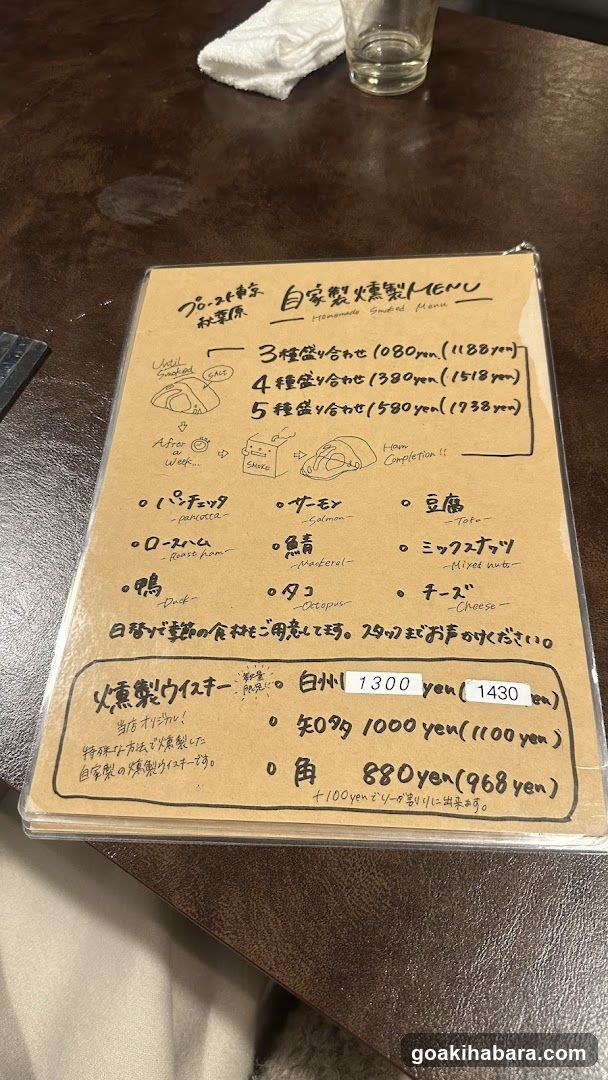 プロースト東京
秋葉原
自家製燻製MENU
Homemade Smoked Menu
3種盛り合わせ 1080yen(1188yen)
4種盛り合わせ 1380yen(1518yen)
5種盛り合わせ 1580yen(1738yen)
Until
Smoked
SALT
After
a
week...
SMOKE
Ham
Completion!!
パンチェッタ
-pancetta-
サーモン
-Salmon-
豆腐
-Tofu-
ロースハム
-Roast ham-
鯖
-Mackerel-
ミックスナッツ
-Mixed nuts-
鴨
-Duck-
タコ
-Octopus-
チーズ
-Cheese-
日替りで季節の食材もご用意してます。スタッフまでお声かけください。
燻製ウイスキー
数量
限定!!
当店オリジナル!
特殊な方法で燻製した
自家製の燻製ウイスキーです。
白州 1300 yen(1430 en)
知多 1000yen(1100yen)
角 880yen(968yen)
+100yenでソーダ割りに出来ます。
goakihabara.com